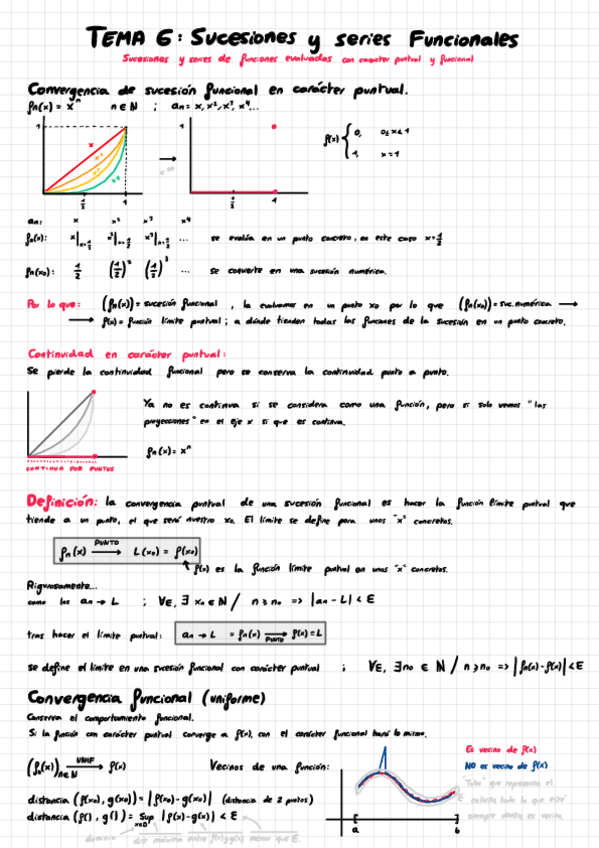 TEMA 6: Sucesiones y series Funcionales
Sucesiones y series de funciones evaluadas con carácter puntual y funcional
Convergencia de sucesión funcional en carácter puntual.
fn(x) = xⁿ n ∈ N ; an = x, x², x³, x⁴...
1
x
x²
x³
x⁴
1/2
1
x→∞
1
1/2
1
f(x) { 0, 0≤x<1
1, x=1
an: x x² x³ x⁴
fn(x): x|x=1/2 x²|x=1/2 x³|x=1/2 ... se evalúa en un punto concreto, en este caso x=1/2
fn(x0): 1/2 (1/2)² (1/2)³ ... se convierte en una sucesión numérica.
Por lo que: (fn(x)) = sucesión funcional , la evaluamos en un punto x0 por lo que (fn(x0)) = suc. numérica →
→ f(x) = función límite puntual; a dónde tienden todas las funciones de la sucesión en un punto concreto.
Continuidad en carácter puntual:
Se pierde la continuidad funcional pero se conserva la continuidad punto a punto.
Ya no es continua si se considera como una función, pero si solo vemos "las
proyecciones" en el eje x si que es continua.
fn(x) = xⁿ
CONTINUA POR PUNTOS
Definición: la convergencia puntual de una sucesión funcional es hacer la función límite puntual que
tiende a un punto, el que será nuestro x0. El límite se define para unos "x" concretos.
fn(x) PUNTO → L(x0) = f(x0)
f(x) es la función límite puntual en unos "x" concretos.
Rigurosamente...
como los an → L ; ∀ε, ∃ x0 ∈ N / n ≥ n0 => |an - L| < ε
tras hacer el límite puntual: an → L = fn(x) → PUNTO f(x) = L
se define el límite en una sucesión funcional con carácter puntual ; ∀ε, ∃n0 ∈ N / n ≥ n0 => |fn(x) - f(x)| < ε
Convergencia funcional (uniforme)
Conserva el comportamiento funcional.
Si la función con carácter puntual converge a f(x), con el carácter funcional hará lo mismo.
(fn(x))n∈N UNIF → f(x) Vecinos de una función:
Es vecino de f(x)
NO es vecino de f(x)
"Tubo" que representa el
entorno todo lo que esté
siempre dentro es vecino
distancia (f(x0), g(x0)) = |f(x0) - g(x0)| (distancia de 2 puntos)
distancia (f(), g()) = Sup x∈D |f(x) - g(x)| < ε
dominio dist máxima entre f(x)y g(x) menor que ε.
a
b